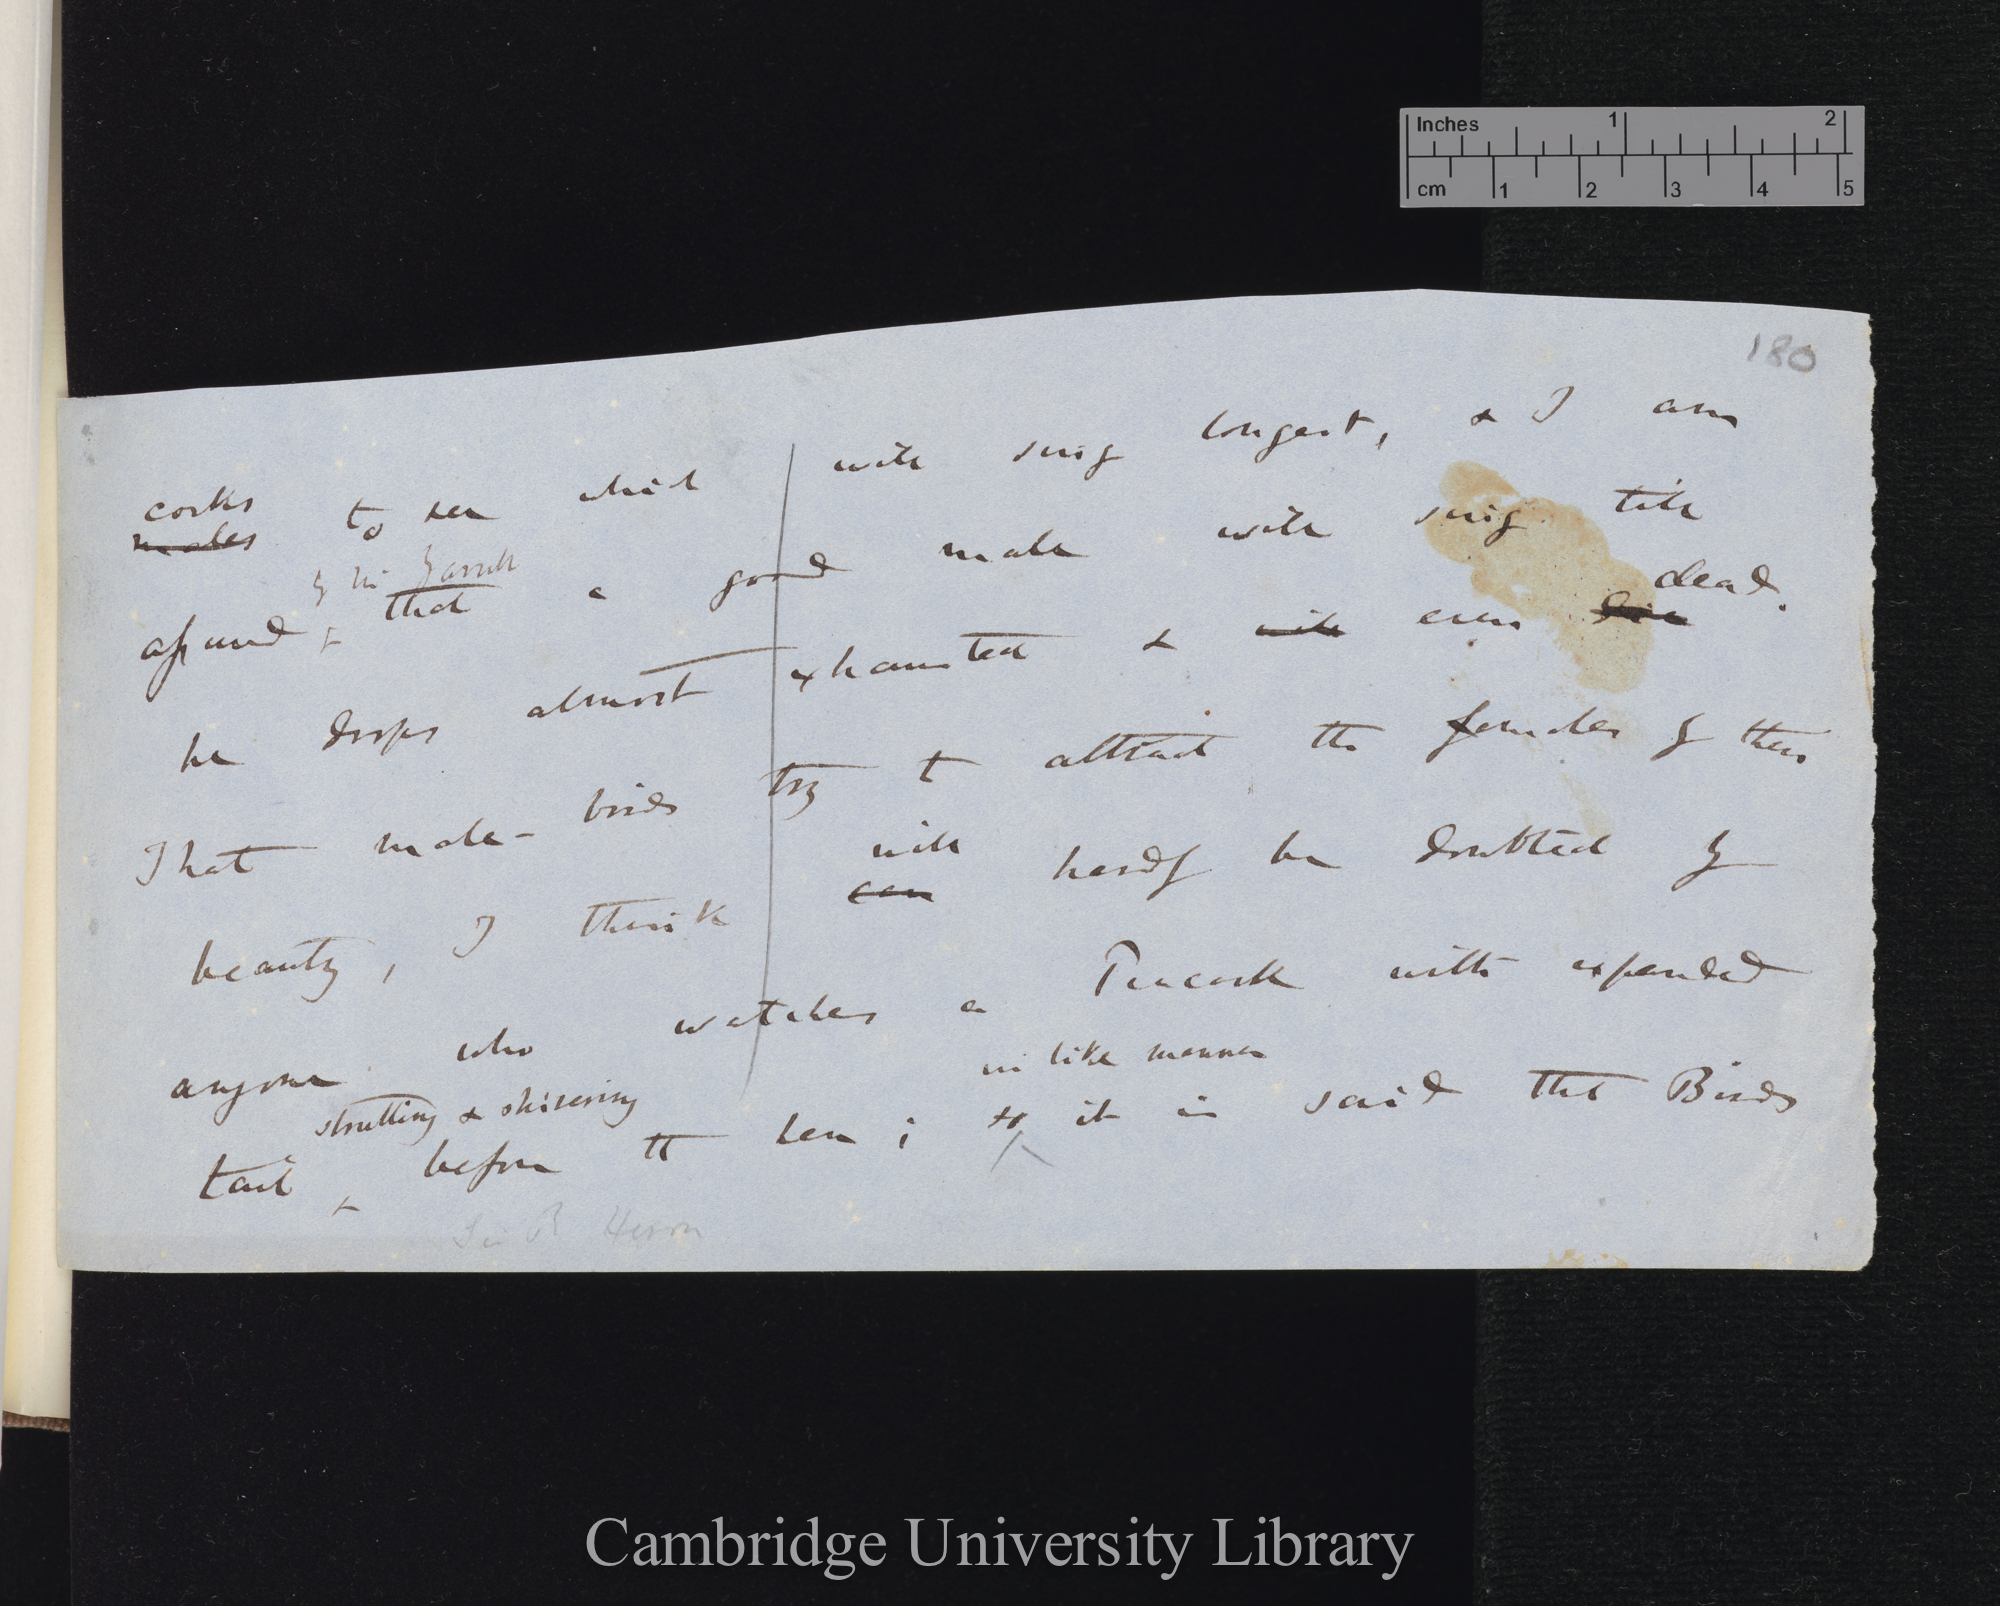 Inches 1 2
cm 1 2 3 4 5
180
cocks
males to see which will sing longest, & I am
by Mr Yarrell
assured, that a good male will sing till
dead.
he drops almost exhausted & will even die
That male-birds try to attract the females by their
will
beauty, I think can hardly be doubted by
anyone who watches a Peacock with expanded
strutting & shivering in like manner
tail before the hen; so it is said that Birds
Sir R Heron
Cambridge University Library